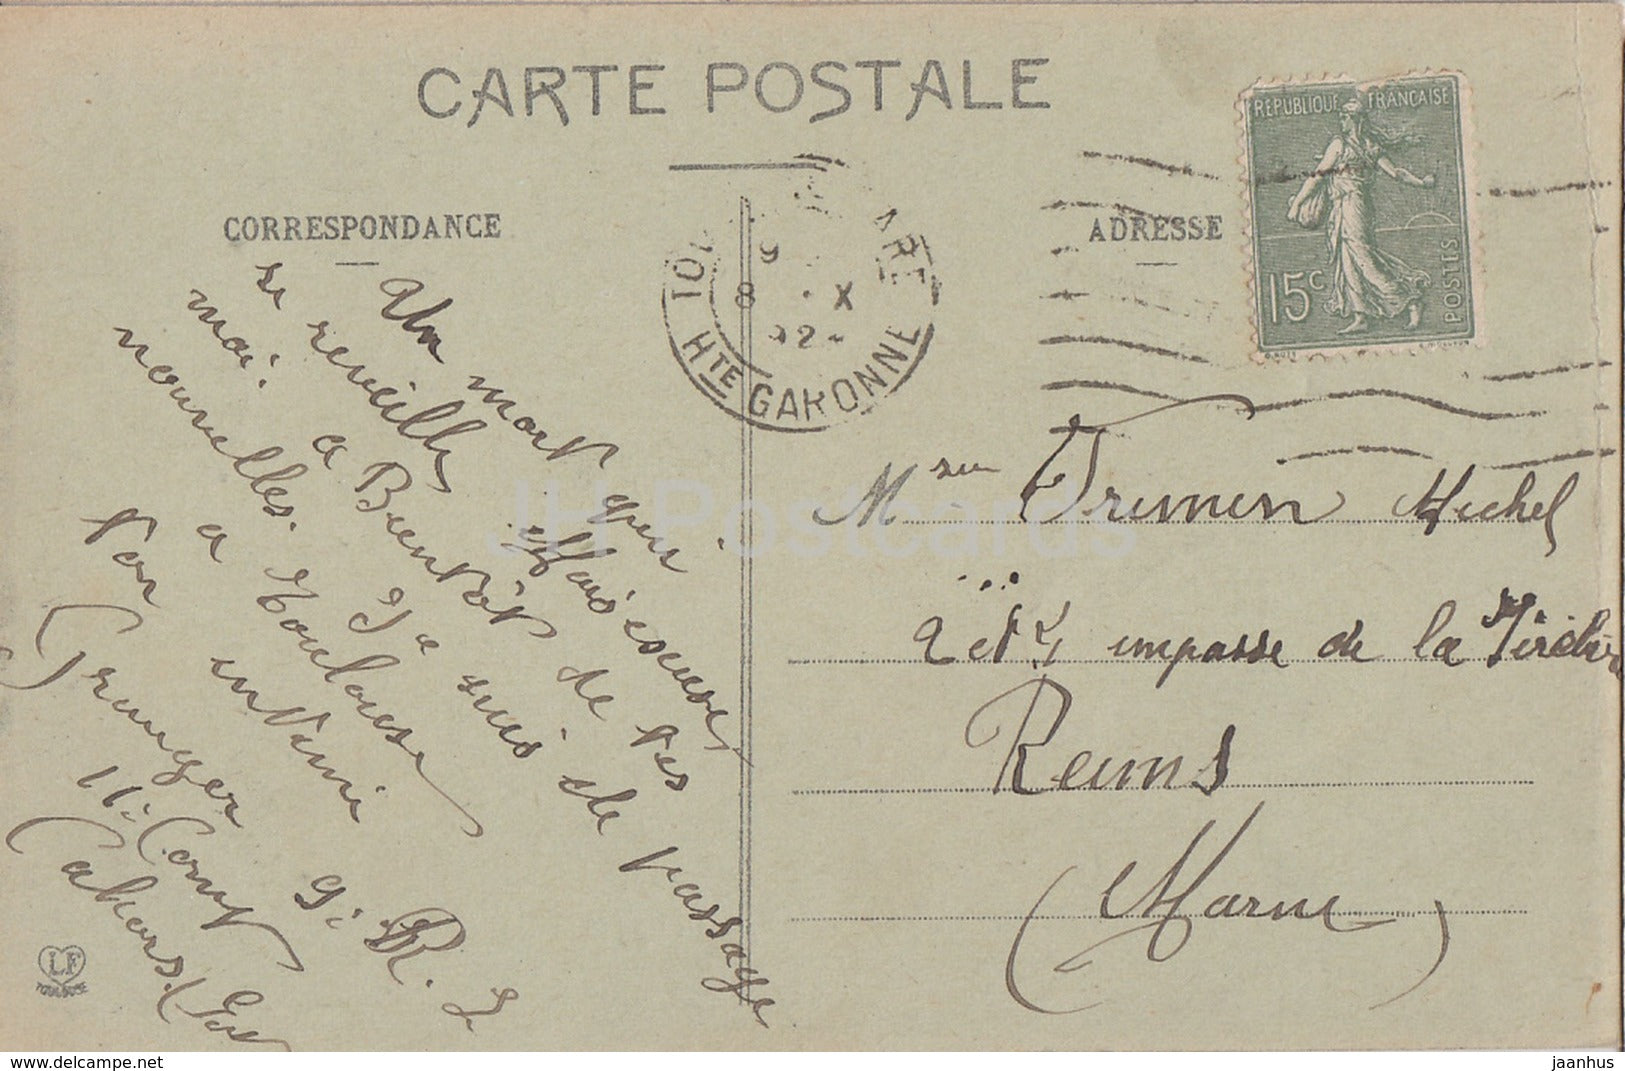 CARTE POSTALE
CORRESPONDANCE
ADRESSE
REPUBLIQUE FRANÇAISE
15c
POSTES
TOU
ARE
HTE GARONNE
9
8 . X
22
Un mort qui
se reveille affaiseuses
moi. a Bientôt de tes
nouvelles. Je suis de passage
a Toulouse
Ton intime
Grunger 9e R. I
11e Comp
Cahors (Lot
Msieu Michel
impasse de la
Reims
(Marne)
LF
TOULOUSE
JH Postcards
delcampe.net
jaanhus